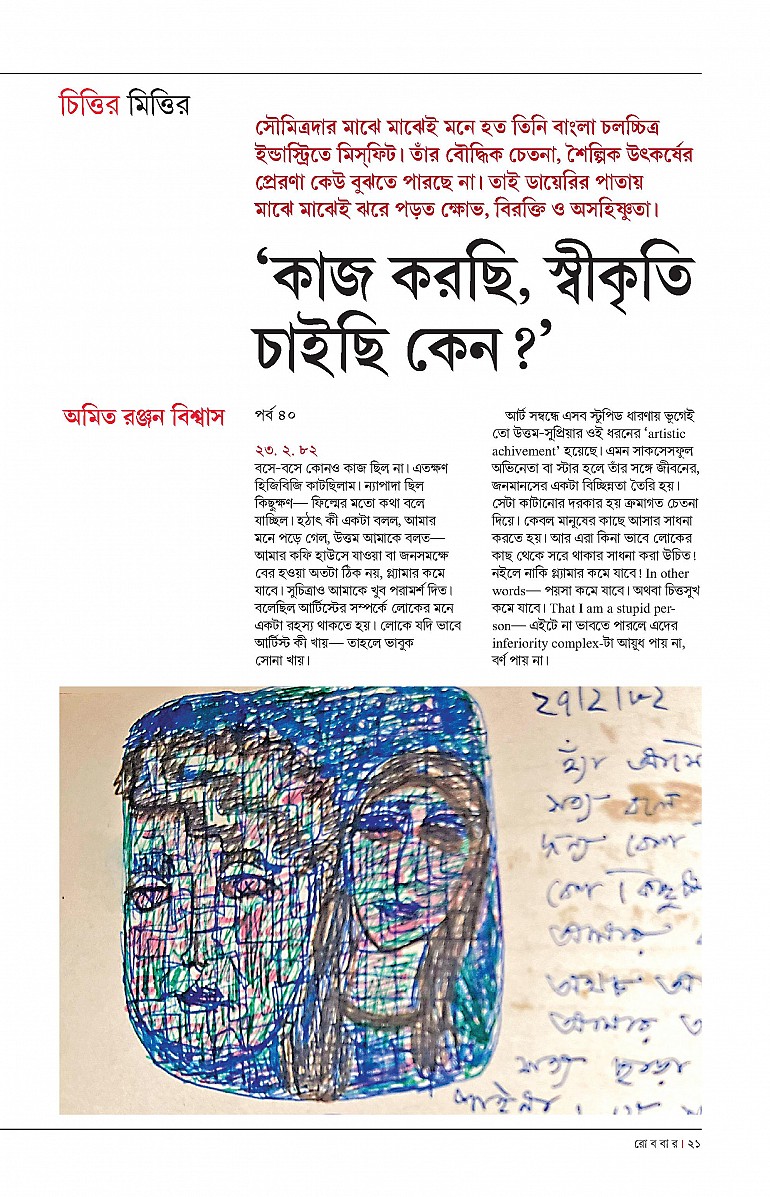 চিত্তির মিত্তির
সৌমিত্রদার মাঝে মাঝেই মনে হত তিনি বাংলা চলচ্চিত্র
ইন্ডাস্ট্রিতে মিস্‌ফিট। তাঁর বৌদ্ধিক চেতনা, শৈল্পিক উৎকর্ষের
প্রেরণা কেউ বুঝতে পারছে না। তাই ডায়েরির পাতায়
মাঝে মাঝেই ঝরে পড়ত ক্ষোভ, বিরক্তি ও অসহিষ্ণুতা।
‘কাজ করছি, স্বীকৃতি
চাইছি কেন?’
অমিত রঞ্জন বিশ্বাস
পর্ব ৪০
২৩. ২. ৮২
বসে-বসে কোনও কাজ ছিল না। এতক্ষণ
হিজিবিজি কাটছিলাম। ন্যাপাদা ছিল
কিছুক্ষণ— ফিল্মের মতো কথা বলে
যাচ্ছিল। হঠাৎ কী একটা বলল, আমার
মনে পড়ে গেল, উত্তম আমাকে বলত—
আমার কফি হাউসে যাওয়া বা জনসমক্ষে
বের হওয়া অতটা ঠিক নয়, গ্ল্যামার কমে
যাবে। সুচিত্রাও আমাকে খুব পরামর্শ দিত।
বলেছিল আর্টিস্টের সম্পর্কে লোকের মনে
একটা রহস্য থাকতে হয়। লোকে যদি ভাবে
আর্টিস্ট কী খায়— তাহলে ভাবুক
সোনা খায়।
আর্ট সম্বন্ধে এসব স্টুপিড ধারণায় ভুগেই
তো উত্তম-সুপ্রিয়ার ওই ধরনের ‘artistic
achivement’ হয়েছে। এমন সাকসেসফুল
অভিনেতা বা স্টার হলে তাঁর সঙ্গে জীবনের,
জনমানসের একটা বিচ্ছিন্নতা তৈরি হয়।
সেটা কাটানোর দরকার হয় ক্রমাগত চেতনা
দিয়ে। কেবল মানুষের কাছে আসার সাধনা
করতে হয়। আর এরা কিনা ভাবে লোকের
কাছ থেকে সরে থাকার সাধনা করা উচিত!
নইলে নাকি গ্ল্যামার কমে যাবে! In other
words— পয়সা কমে যাবে। অথবা চিত্তসুখ
কমে যাবে। That I am a stupid per-
son— এইটে না ভাবতে পারলে এদের
inferiority complex-টা আয়ুধ পায় না,
বর্ণ পায় না।
২৭/২/৮২
হ্যাঁ
সত্য বলে
আমার
আমার
সত্য ছাড়া
রোববার। ২১